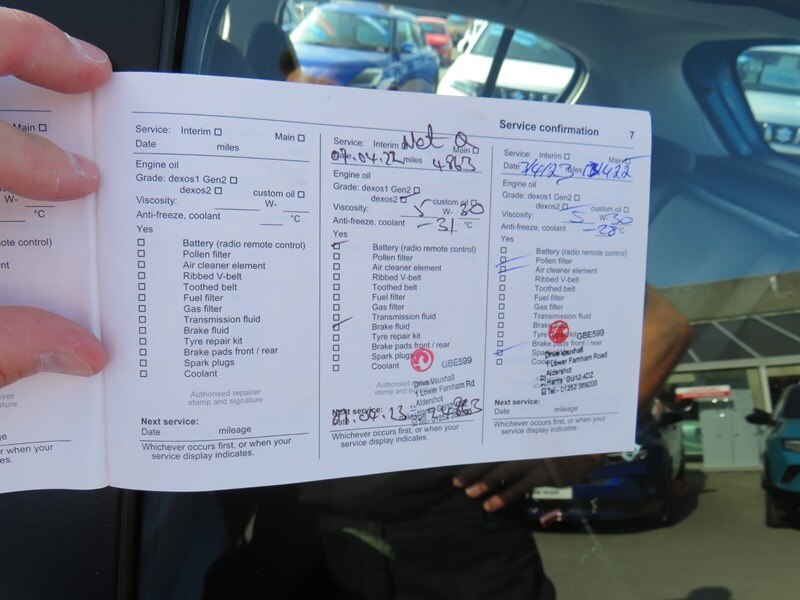 Service confirmation 7
Service: Interim Main
Date miles
Engine oil
Grade: dexos1 Gen2
dexos2 custom oil
Viscosity: W-
Anti-freeze, coolant °C
Yes
Battery (radio remote control)
Pollen filter
Air cleaner element
Ribbed V-belt
Toothed belt
Fuel filter
Gas filter
Transmission fluid
Brake fluid
Tyre repair kit
Brake pads front / rear
Spark plugs
Coolant
Authorised repairer
stamp and signature
Next service:
Date mileage
Whichever occurs first, or when your
service display indicates.
Not a
Service: Interim Main
07.04.22 miles 4863
Engine oil
Grade: dexos1 Gen2
dexos2 custom oil
Viscosity: 5 W- 30
Anti-freeze, coolant -31 °C
Yes
Battery (radio remote control)
Pollen filter
Air cleaner element
Ribbed V-belt
Toothed belt
Fuel filter
Gas filter
Transmission fluid
Brake fluid
Tyre repair kit
Brake pads front / rear
Spark plugs
Coolant
GBE599
Authorised
stamp and
Drive Vauxhall
1 Lower Farnham Rd
Aldershot
Next service:
Date
Whichever occurs first, or when your
service display indicates.
Service: Interim Main
Date 3/4/23 miles
Engine oil
Grade: dexos1 Gen2
dexos2 custom oil
Viscosity: 5 W- 30
Anti-freeze, coolant -28 °C
Yes
Battery (radio remote control)
Pollen filter
Air cleaner element
Ribbed V-belt
Toothed belt
Fuel filter
Gas filter
Transmission fluid
Tyre kit
Brake pads front / rear
GBE599
Drive Vauxhall
1 Lower Farnham Road
Aldershot
Hants GU12 4DZ
Tel - 01252 369200
Next service:
Date mileage
Whichever occurs first, or when your
service display indicates.
remote control)
element
°C